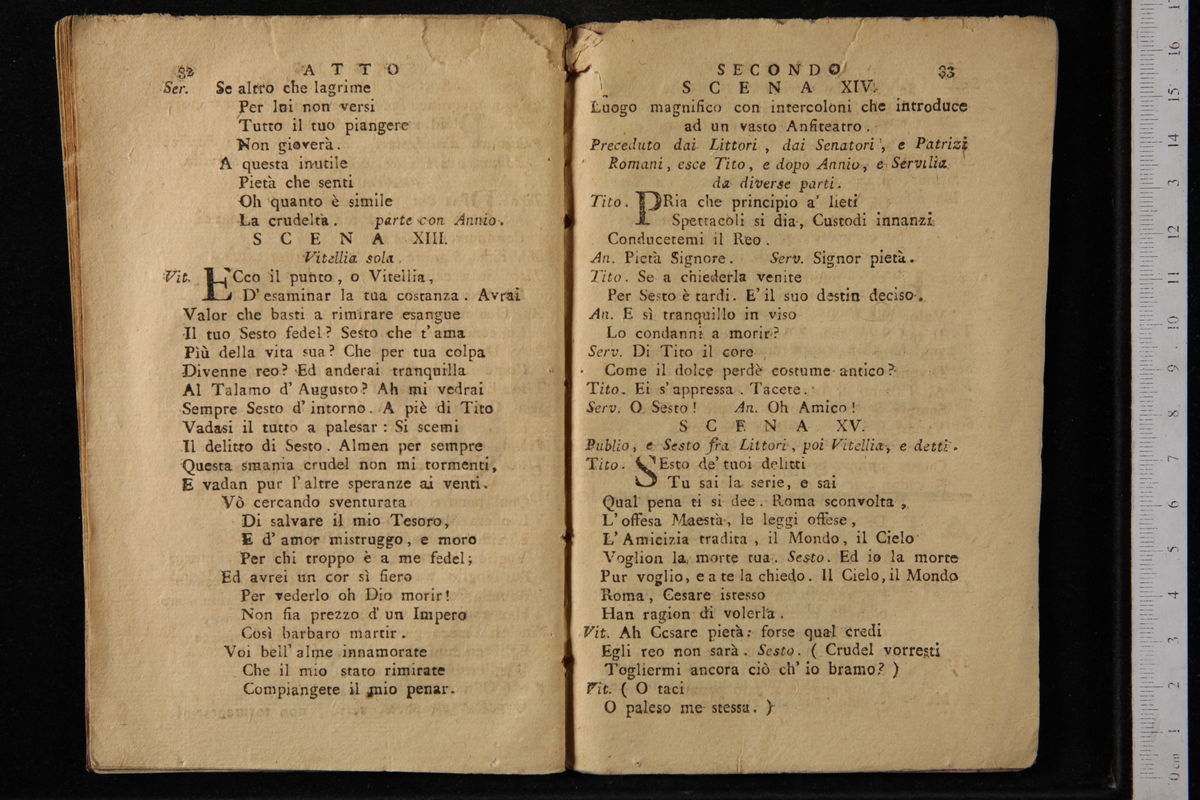 32 ATTO
Ser. Se altro che lagrime
Per lui non versi
Tutto il tuo piangere
Non gioverà.
A questa inutile
Pietà che senti
Oh quanto è simile
La crudeltà. parte con Annio.
SCENA XIII.
Vitellia sola.
Vit. ECco il punto, o Vitellia,
D' esaminar la tua costanza. Avrai
Valor che basti a rimirare esangue
Il tuo Sesto fedel? Sesto che t' ama
Più della vita sua? Che per tua colpa
Divenne reo? Ed anderai tranquilla
Al Talamo d' Augusto? Ah mi vedrai
Sempre Sesto d' intorno. A piè di Tito
Vadasi il tutto a palesar: Si scemi
Il delitto di Sesto. Almen per sempre
Questa smania crudel non mi tormenti,
E vadan pur l' altre speranze ai venti.
Vò cercando sventurata
Di salvare il mio Tesoro,
E d' amor mistruggo, e moro
Per chi troppo è a me fedel;
Ed avrei un cor sì fiero
Per vederlo oh Dio morir!
Non fia prezzo d' un Impero
Così barbaro martir.
Voi bell' alme innamorate
Che il mio stato rimirate
Compiangete il mio penar.
SECONDO 33
SCENA XIV.
Luogo magnifico con intercoloni che introduce
ad un vasto Anfiteatro.
Preceduto dai Littori, dai Senatori, e Patrizi
Romani, esce Tito, e dopo Annio, e Servilia
da diverse parti.
Tito. PRia che principio a' lieti
Spettacoli si dia, Custodi innanzi
Conducetemi il Reo.
An. Pietà Signore. Serv. Signor pietà.
Tito. Se a chiederla venite
Per Sesto è tardi. E' il suo destin deciso.
An. E sì tranquillo in viso
Lo condanni a morir?
Serv. Di Tito il core
Come il dolce perdè costume antico?
Tito. Ei s' appressa. Tacete.
Serv. O Sesto! An. Oh Amico!
SCENA XV.
Publio, e Sesto fra Littori, poi Vitellia, e detti.
Tito. SEsto de' tuoi delitti
Tu sai la serie, e sai
Qual pena ti si dee. Roma sconvolta,
L' offesa Maestà, le leggi offese,
L' Amicizia tradita, il Mondo, il Cielo
Voglion la morte tua. Sesto. Ed io la morte
Pur voglio, e a te la chiedo. Il Cielo, il Mondo
Roma, Cesare istesso
Han ragion di volerla.
Vit. Ah Cesare pietà: forse qual credi
Egli reo non sarà. Sesto. ( Crudel vorresti
Togliermi ancora ciò ch' io bramo? )
Vit. ( O taci
O paleso me stessa. )